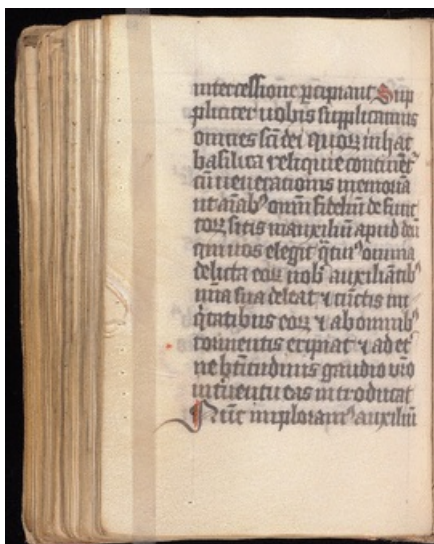 intercessione p̄cipiant Sup
pliciter uobis supplicamus
omnes sc̄i dei quoꝝ in hac
basilica reliquie continēt᷑
cū uenerationis memoria
ut aīabꝰ om̄i fideliū defunc
toꝝ sitis in auxiliū apud deū
qui uos elegit q̄tinꝰ omnia
delicta eoꝝ uob̄ auxiliātibꝰ
mīa sua deleat ⁊ cūctis ini
q̄tatibus eoꝝ ⁊ ab omnibꝰ
tormentis eripiat ⁊ ad et
ne b̄titudinis gaudio vr̄o
intūentu eas introducat
Nūc imploramꝰ auxiliū